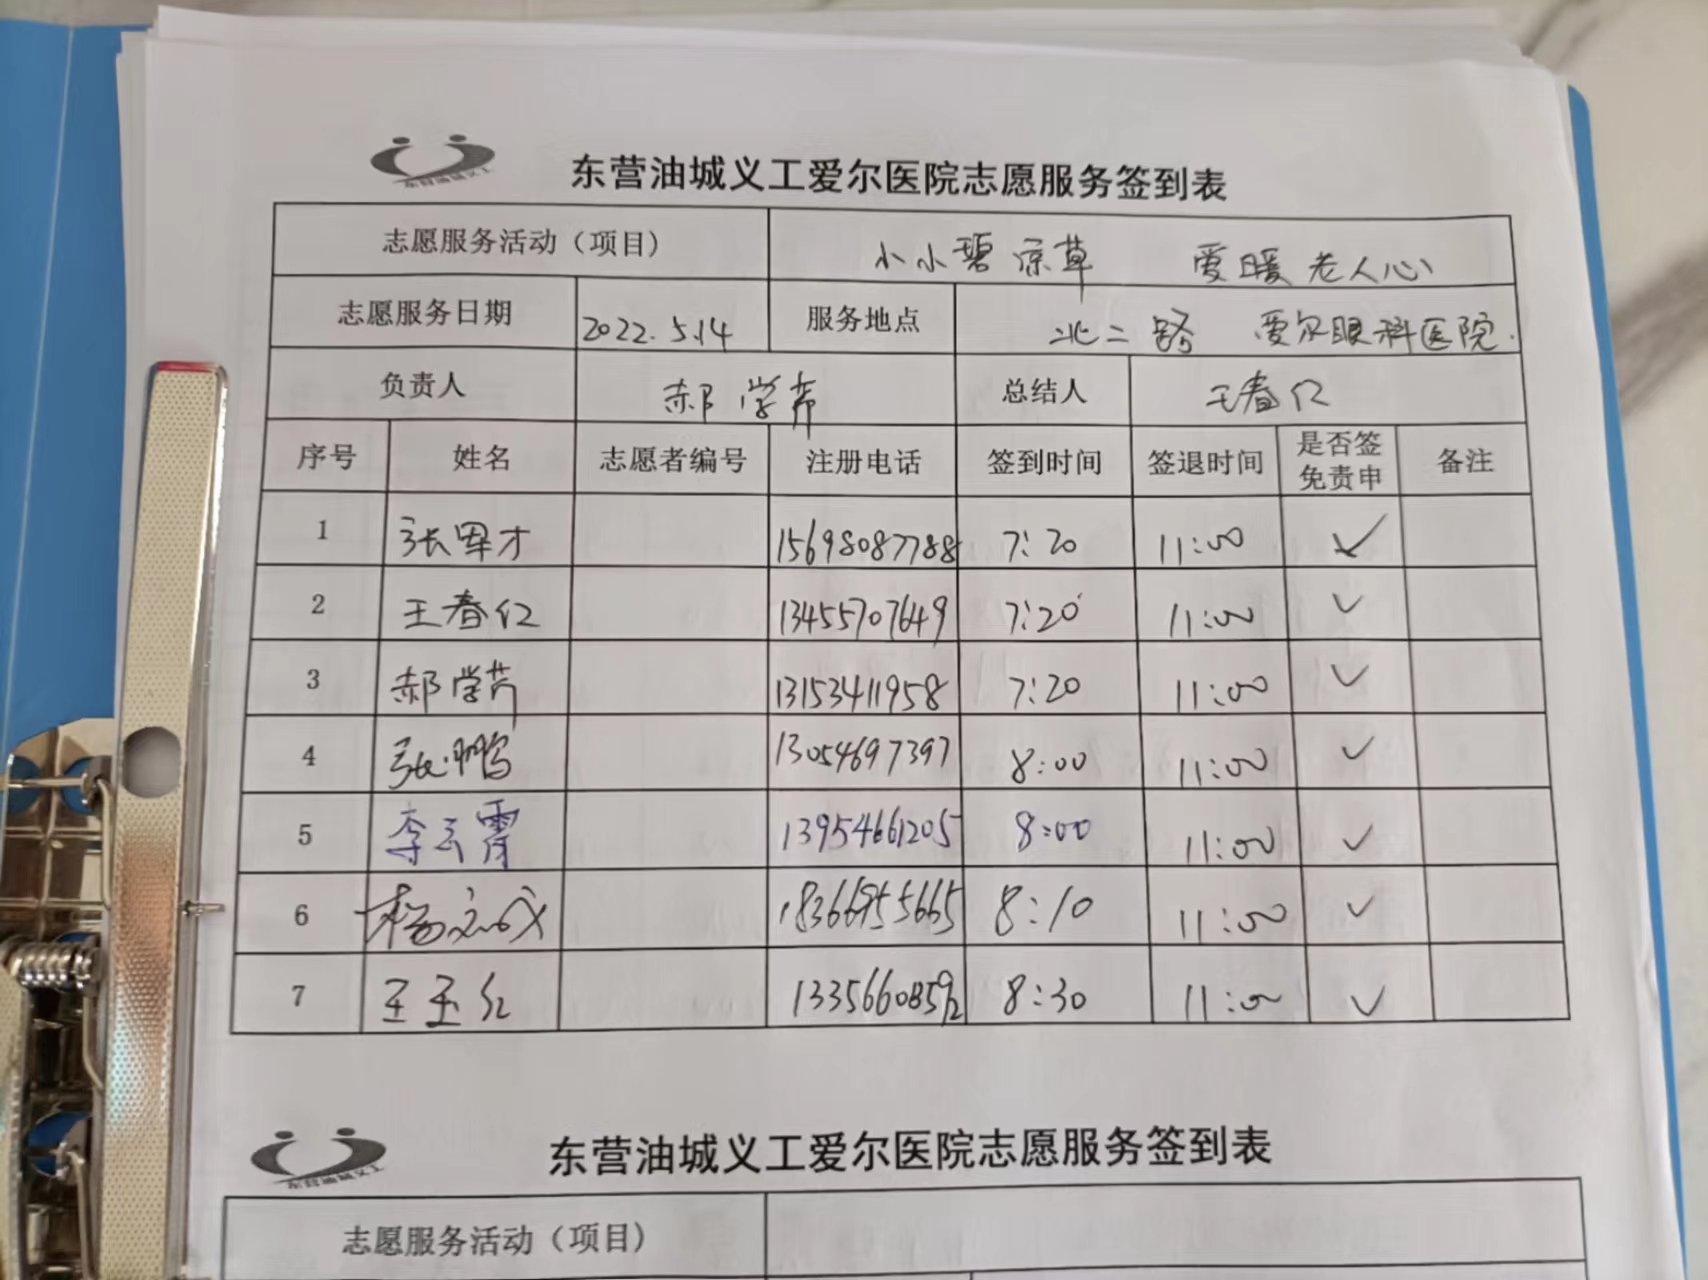 东营油城义工
东营油城义工爱尔医院志愿服务签到表
志愿服务活动（项目） 小小碧凉草 爱暖老人心
志愿服务日期 2022.5.14 服务地点 北二路 爱尔眼科医院.
负责人 郝学芹 总结人 王春仁
序号 姓名 志愿者编号 注册电话 签到时间 签退时间 是否签免责申 备注
1 张军才 15698087788 7:20 11:00 ✓
2 王春仁 13455707649 7:20 11:00 ✓
3 郝学芹 13153411958 7:20 11:00 ✓
4 张鹏 13054697397 8:00 11:00 ✓
5 李云霄 13954661205 8:00 11:00 ✓
6 杨文成 18366955665 8:10 11:00 ✓
7 王玉红 13356608592 8:30 11:00 ✓
东营油城义工
东营油城义工爱尔医院志愿服务签到表
志愿服务活动（项目）